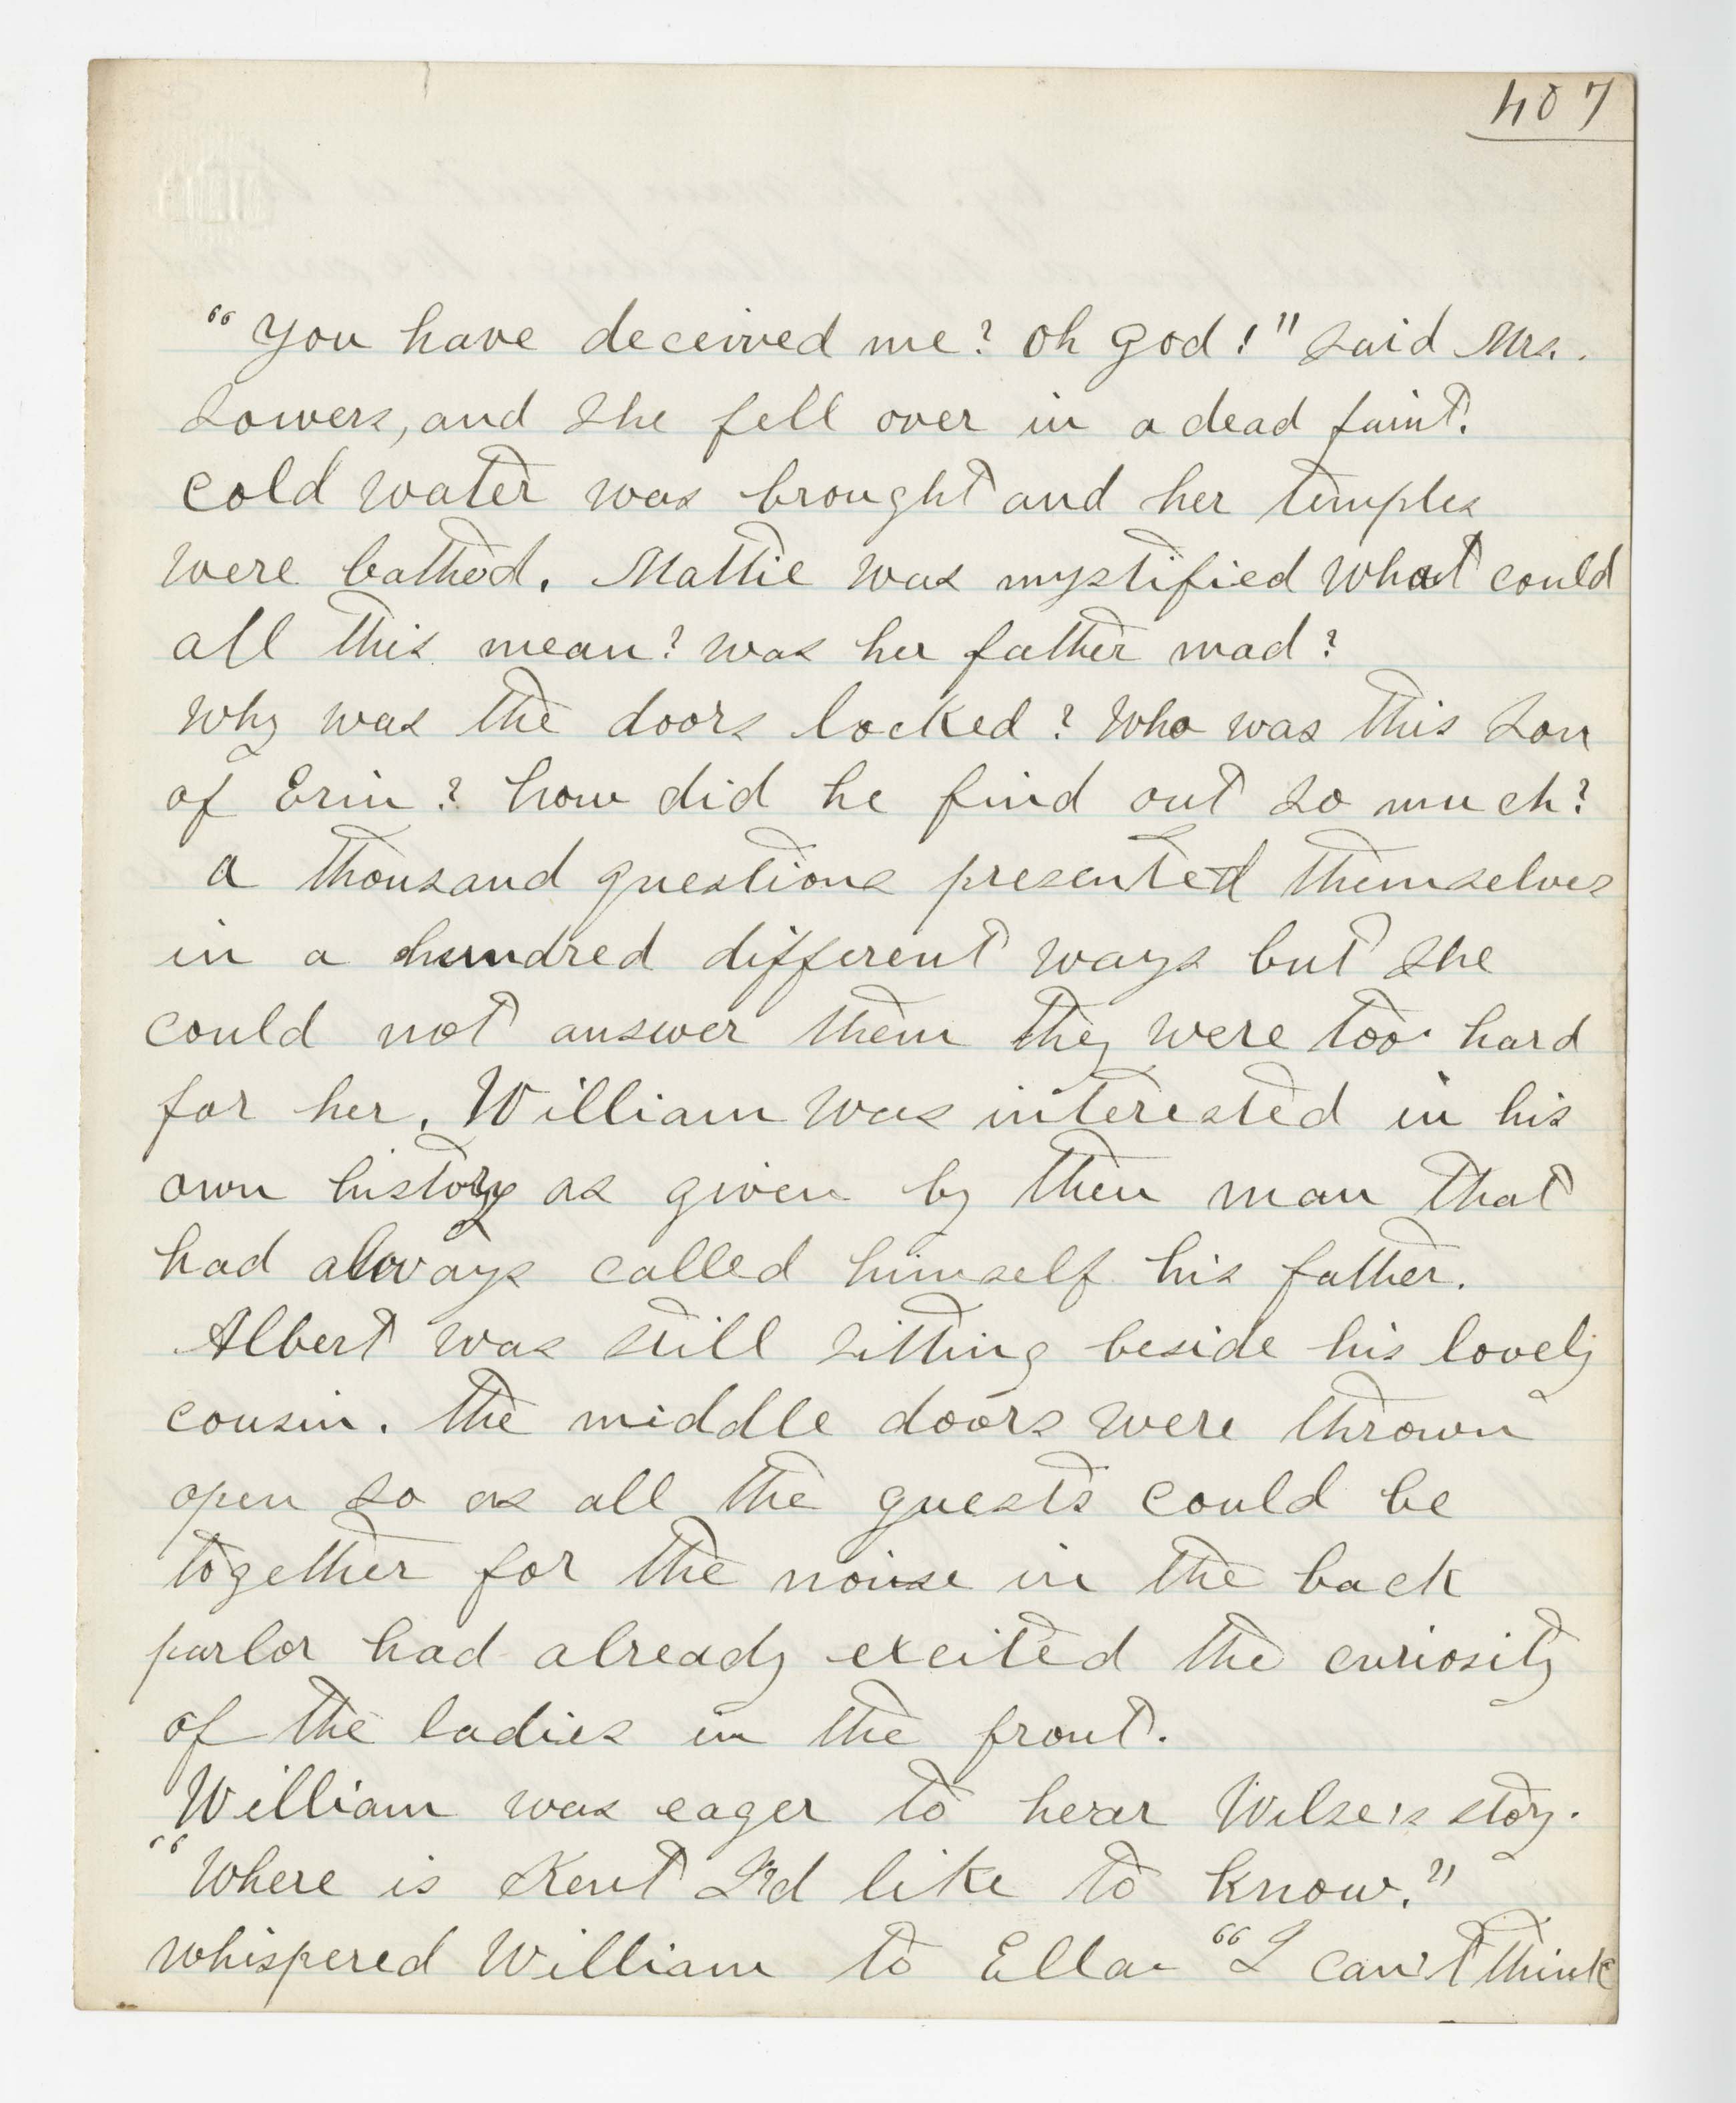 407
"You have deceived me? Oh God!" said Mrs.
Sowers, and she fell over in a dead faint.
Cold water was brought and her temples
were bathed. Mattie was mystified what could
all this mean? was her father mad?
Why was the doors locked? Who was this son
of Erin? how did he find out so much?
a thousand questions presented themselves
in a hundred different ways but she
could not answer them they were too hard
for her. William was interested in his
own history as given by then man that
had always called himself his father.
Albert was still sitting beside his lovely
cousin. The middle doors were thrown
open so as all the guests could be
together for the noise in the back
parlor had already excited the curiosity
of the ladies in the front.
William was eager to hear Wilse's story.
"Where is Kent I'd like to know."
whispered William to Ella "I can't think